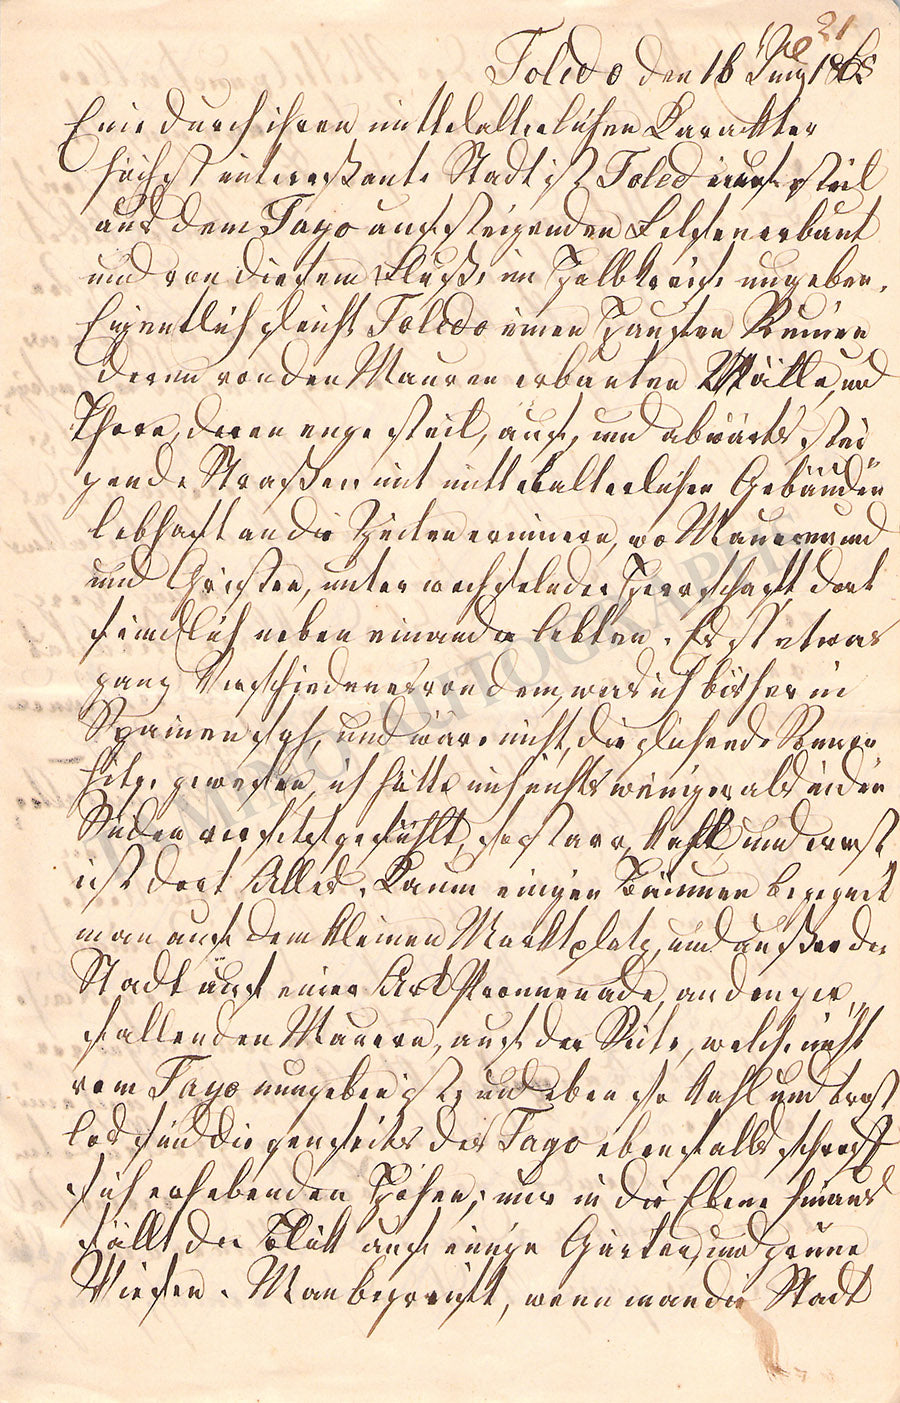 21
No
Toledo den 16 Juny 1868
Eine durch ihren mittelalterlichen Karakter
höchst interessante Stadt ist Toled steil
aus dem Tago aufsteigenden Felsen erbaut
und von diesem Fluße im Halbkreise umgeben.
Eigentlich gleicht Toledo einen Haufen Ruinen
deren von den Mauren erbauten Wälle, und
Thore, deren enge steil, auf, und abwärts stei
gende Straßen mit mittelalterlichen Gebäuden
lebhaft an die Zeiten erinnern, wo Mauren und
und Christen, unter wechselnder Herrschaft dort
feindlich neben einander lebten. Es ist etwas
ganz Verschiedenes von dem, was ich bisher in
Spanien sah, und wäre nicht, die glühende Sonnen
hitze gewesen, ich hätte mich nichts weniger als in den
Süden versetzt gefühlt, so starr, kahl und ernst
ist dort Alles. Kaum einigen Bäumen begegnet
man auf dem kleinen Marktplatz, und außer der
Stadt auf einer Art Promenade, an den zer
fallenden Mauern, auf der Seite, welche nicht
vom Tago umgeben ist, und eben so kahl und trost
los sind die jenseits des Tago ebenfalls schroff
sich erhebenden Höhen; nur in die Ebene hinaus
fällt der Blick auf einige Gärten, und grüne
Wiesen. Man begreift, wenn man die Stadt